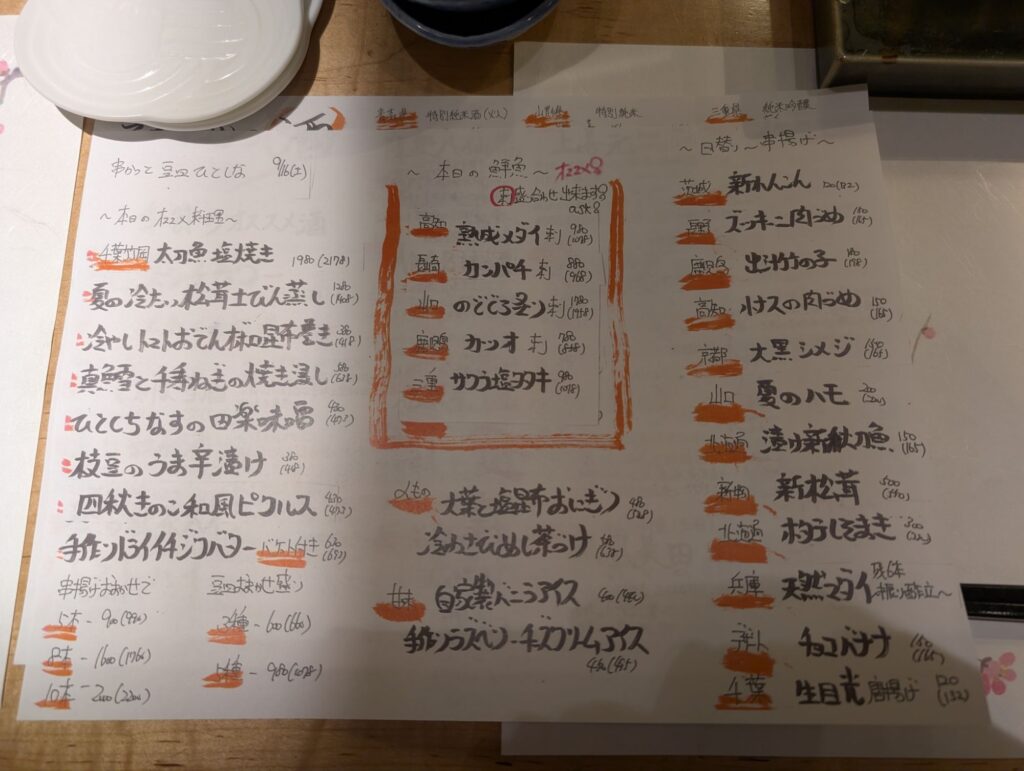 特別純米酒(火入)
山形県 特別純米
三重県 純米吟醸
串かつと豆皿 ひとしな 9/16(土)
～本日のオススメ料理～
千葉竹岡 太刀魚塩焼き 1980(2178)
夏の冷たい松茸土びん蒸し 1280(1408)
冷やしトマトおでん 梅昆布巻き 380(418)
真鱈と千寿ねぎの焼き浸し
ひとくちなすの田楽味噌 430(473)
枝豆のうま辛漬け 380(418)
四秋きのこ和風ピクルス 430(473)
手作りドライイチジクバター バケット付き 630(693)
串揚げおまかせで
5本 - 900(990)
8本 - 1600(1760)
10本 - 2000(2200)
豆皿おまかせ盛り
3種 - 600(660)
5種 - 980(1078)
～本日の鮮魚～ オススメ
刺盛合わせ出来ます
ask
高知 熟成メダイ刺 980(1078)
長崎 カンパチ刺 880(968)
山口 のどぐろ炙り刺 1780(1958)
鹿児島 カツオ刺 780(858)
三重 サワラ塩タタキ 980(1078)
〆もの 大葉と塩昆布おにぎり 480(528)
冷やわさびめし茶づけ
甘味 自家製バニラアイス 400(440)
手作りラズベリーチーズクリームアイス 450(495)
～日替り～串揚げ～
茨城 新れんこん 120(132)
ズッキーニ肉づめ 150(165)
鹿児島 出汁竹の子
高知 小ナスの肉づめ 150(165)
京都 大黒シメジ 150(165)
山口 夏のハモ 200(220)
北海道 漬け新秋刀魚 150(165)
新松茸 500(550)
北海道 ホタテしそまき
兵庫 天然マダイ 残6本
チョコバナナ 150(165)
千葉 生目光唐揚げ 120(132)